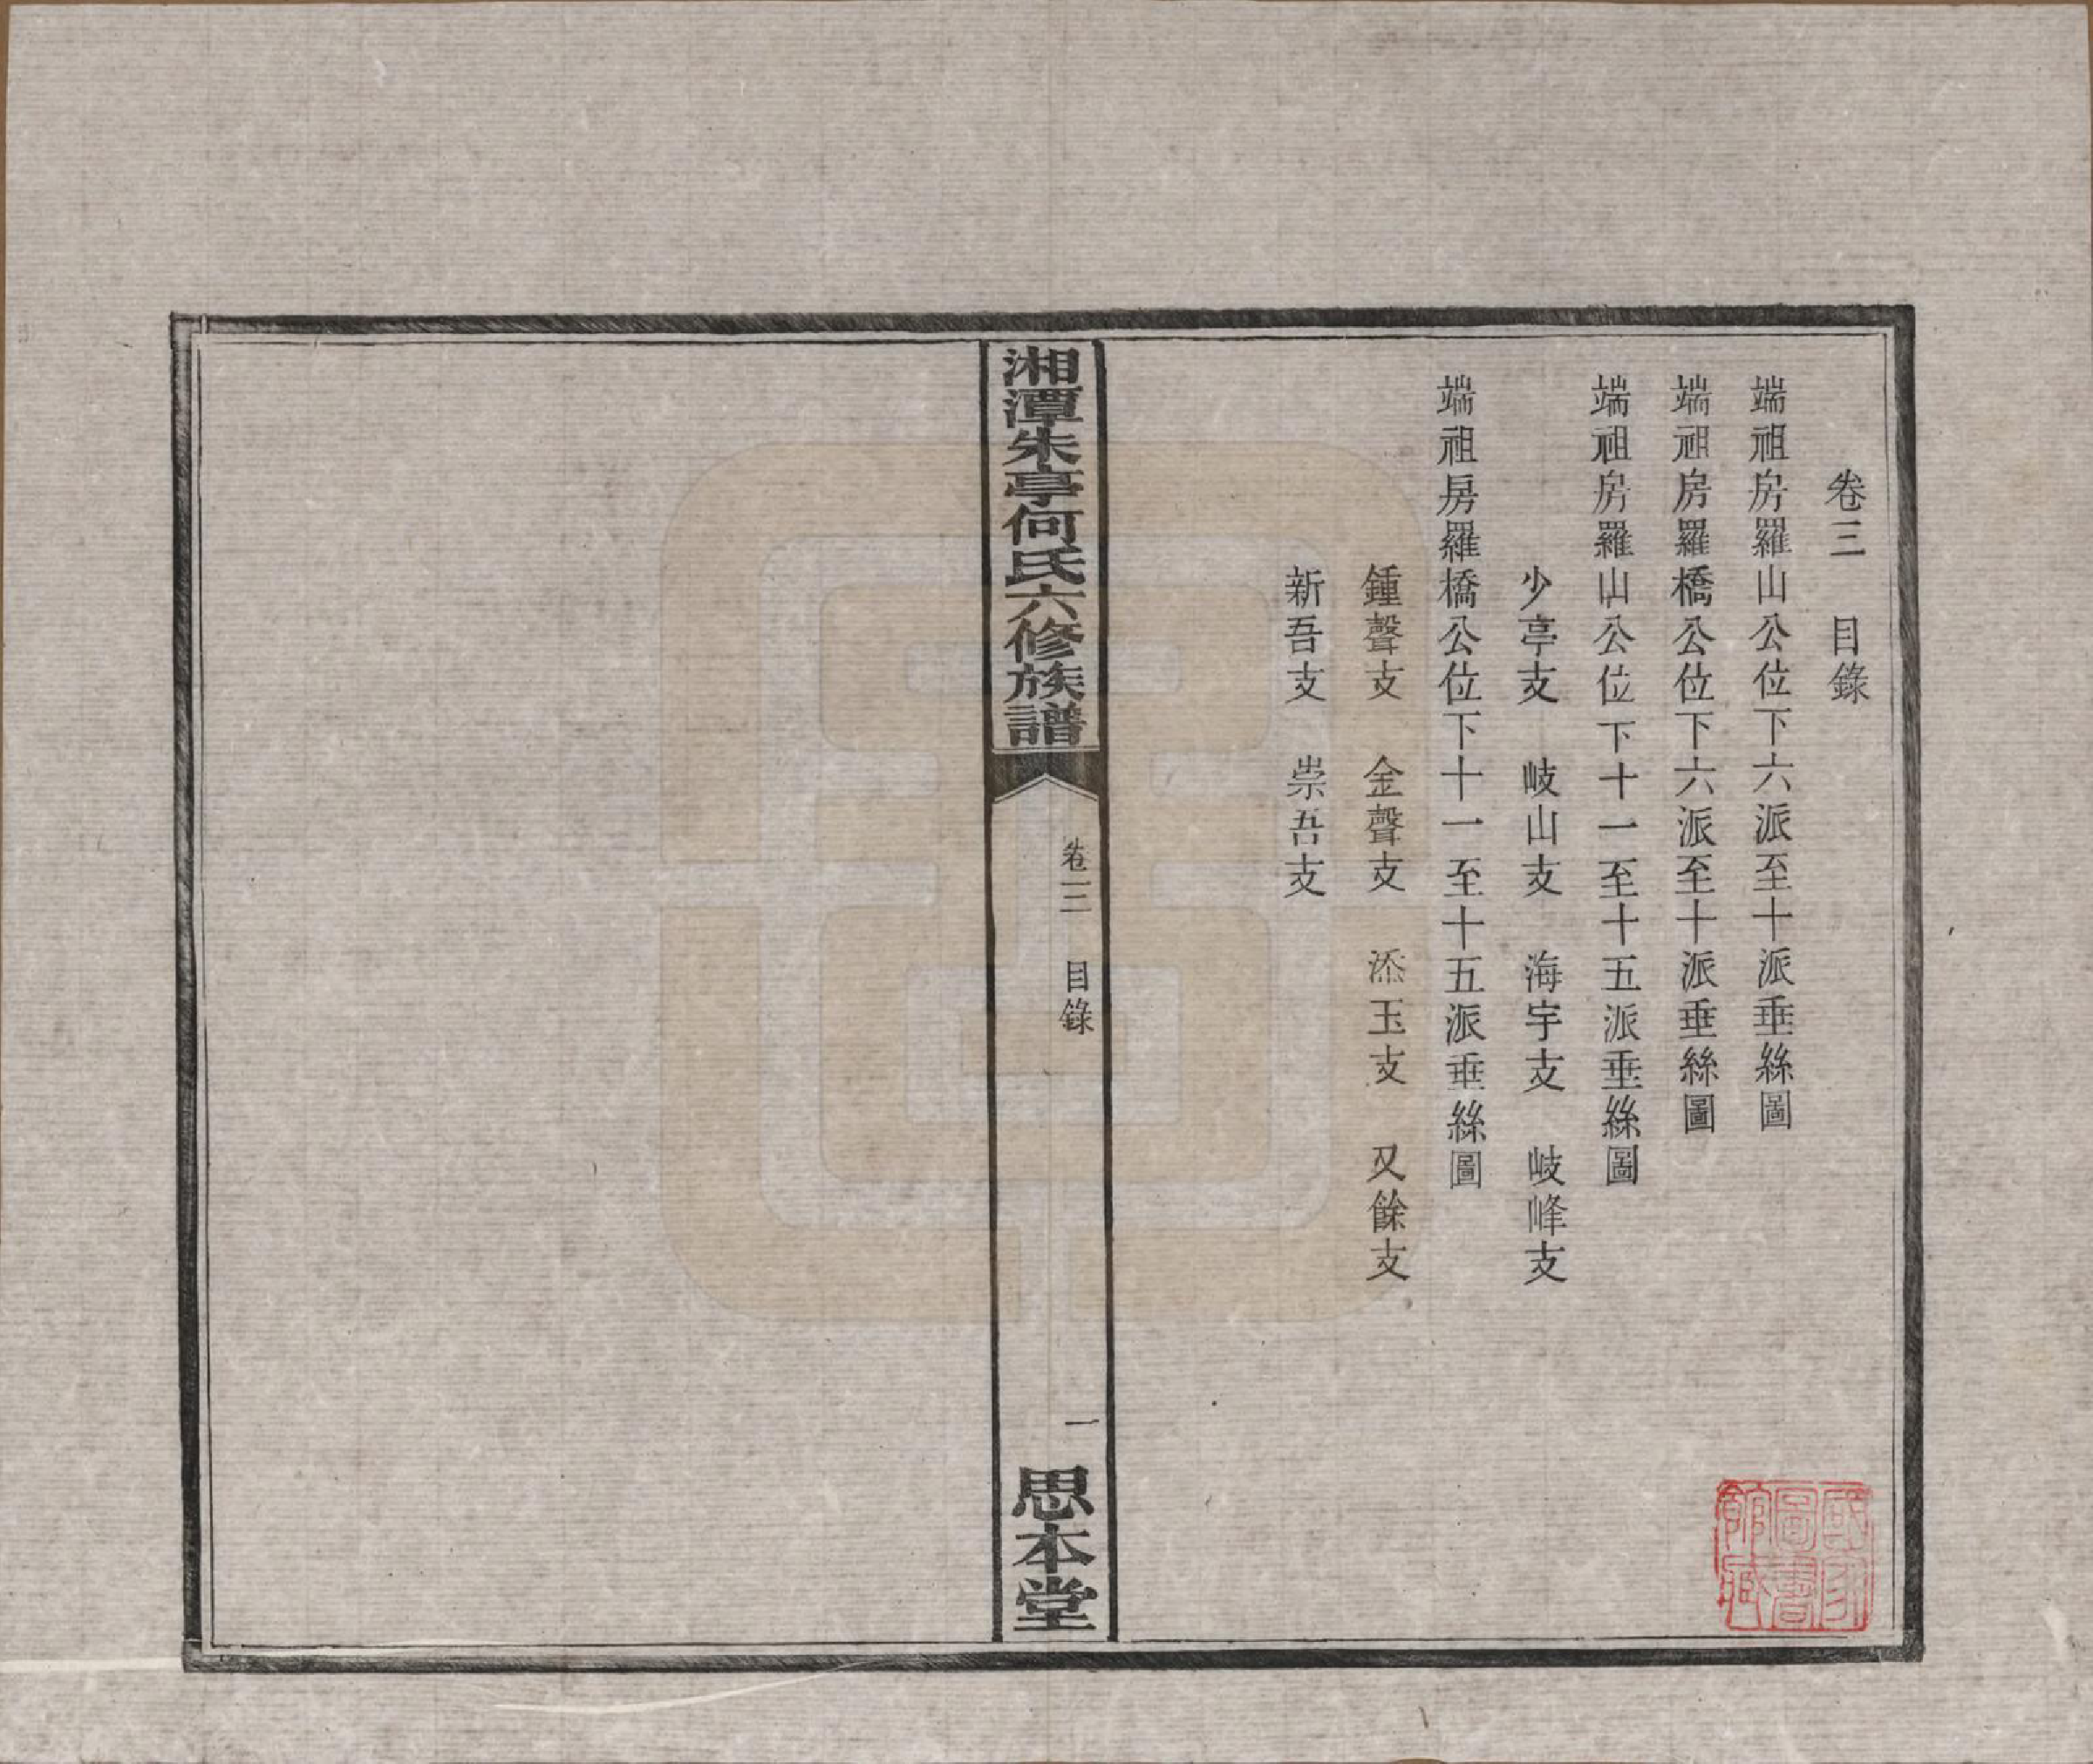 卷三　目錄
端祖房羅山公位下六派至十派垂絲圖
端祖房羅橋公位下六派至十派垂絲圖
端祖房羅山公位下十一至十五派垂絲圖
少亭支　岐山支　海宇支　岐峰支
端祖房羅橋公位下十一至十五派垂絲圖
鍾聲支　金聲支　添玉支　又餘支
新吾支　崇吾支
湘潭朱亭何氏六修族譜
卷三　目錄
一
思本堂
國家圖書館藏